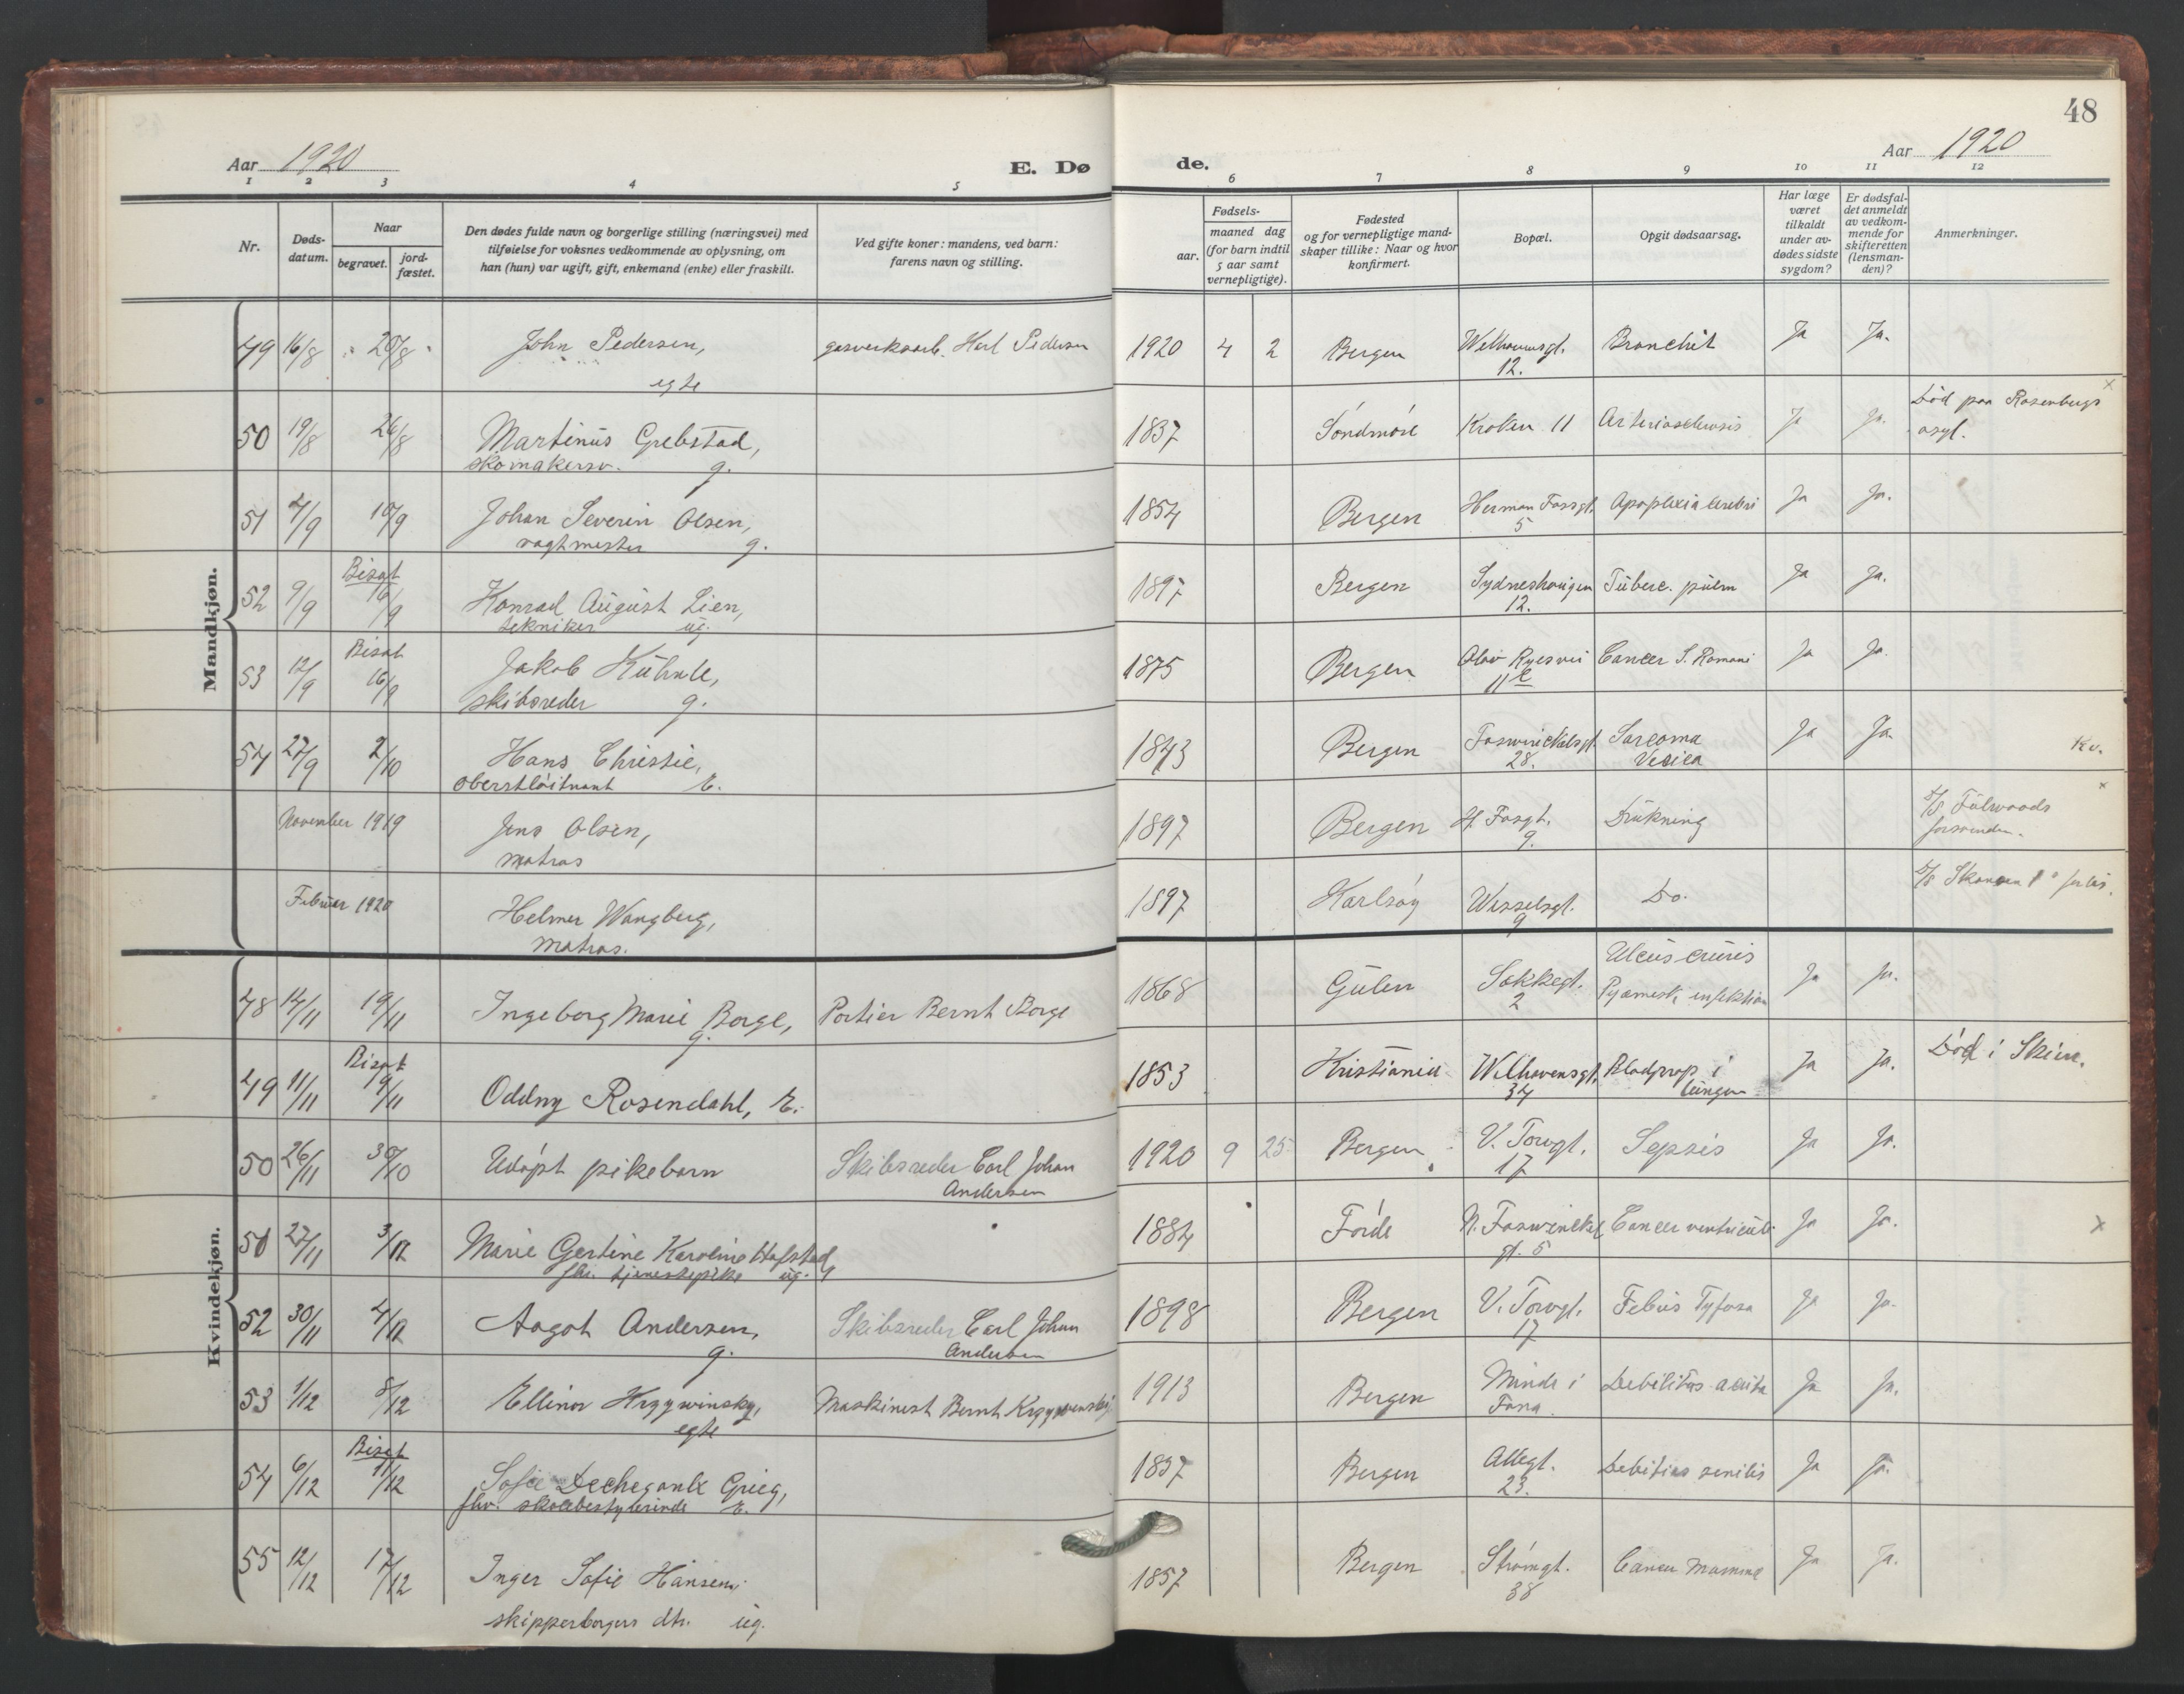 48
Aar 1920
E. Dø
de.
Aar 1920
1 2 3 4 5 6 7 8 9 10 11 12
Nr.
Døds-
datum.
Naar
begravet.
jord-
fæstet.
Den dødes fulde navn og borgerlige stilling (næringsvei) med
tilføielse for voksnes vedkommende av oplysning, om
han (hun) var ugift, gift, enkemand (enke) eller fraskilt.
Ved gifte koner: mandens, ved barn:
farens navn og stilling.
Fødsels-
aar.
maaned dag
(for barn indtil
5 aar samt
vernepligtige).
Fødested
og for vernepligtige mand-
skaper tillike: Naar og hvor
konfirmert.
Bopæl.
Opgit dødsaarsag.
Har læge
været
tilkaldt
under av-
dødes sidste
sygdom?
Er dødsfal-
det anmeldt
av vedkom-
mende for
skifteretten
(lensman-
den)?
Anmerkninger.
Mandkjøn.
49 16/8 " 20/8 " John Pedersen, gasverksarb. Karl Pedersen 1920 4 2 Bergen Welhavensgt. Bronchit Ja Ja.
egte 12.
50 19/8 26/8 Martinus Grebstad, 1837 Søndmøre Kroken 11 Arteriosclerosis Ja Ja. Død paa Rosenbergs x
skomakersv. g. asyl.
51 4/9 10/9 Johan Severin Olsen, 1854 Bergen Herman Fossgt. Apoplexia cerebri Ja Ja.
vagtmester g. 5
Bisat
52 9/9 16/9 Konrad August Lien, 1897 Bergen Sydneshaugen Tuberc. pulm Ja Ja.
tekniker ug. 12.
Bisat
53 12/9 16/9 Jakob Kuhnle, 1875 Bergen Olav Ryesvei Cancer S. Romani Ja Ja.
skibsreder g. 11 c
54 27/9 2/10 Hans Christie, 1843 Bergen Foswinckelsgt. Sarcoma Ja Ja. Kv.
oberstløitnant E. 28. Vesica
November 1919 Jens Olsen, 1897 Bergen H. Fosgt. Drukning S/S Fulwoods x
matros 9. forsvinden.
Februar 1920 Helmer Wangberg, 1897 Karlsøy Wesselsgt. Do. S/S Skansen 1º forlis.
matros. 9
Kvindekjøn.
48 14/11 19/11 Ingeborg Marie Borge, Portier Bernt Borge 1868 Gulen Sokkegt. Ulcus cruris Ja Ja.
g. 2 Pyæmisk infektion
Bisat
49 11/11 19/11 Oddny Rosendahl, E. 1853 Kristiania Welhavensgt. Blodprop i Ja Ja. Død i Skien.
34 lungen
50 26/11 30/10 Udøpt pikebarn Skibsreder Carl Johan 1920 9 25 Bergen V. Torvgt. Sepsis Ja Ja.
Andersen 17
51 27/11 3/12 Marie Gertine Karoline Hafstad, 1884 Førde N. Foswinckel Cancer ventriculi Ja Ja. x
fhv. tjenestepike ug. gt. 5
52 30/11 4/12 Aagot Andersen, Skibsreder Carl Johan 1898 Bergen V. Torvgt. Febris Tyfosa Ja Ja.
g. Andersen 17
53 1/12 8/12 Ellinor Krzywinsky, Maskinist Bernt Krzywinsky 1913 Bergen Minde i Debilitas acuta Ja Ja.
egte Fana.
Bisat
54 6/12 11/12 Sofie Dechezaulx Grieg, 1837 Bergen Allegt. Debilitas senilis Ja Ja.
fhv. skolebestyrerinde E. 23.
55 12/12 17/12 Inger Sofie Hansen, 1857 Bergen Strømgt. Cancer Mammae Ja Ja.
skipperborgers dtr. ug. 38